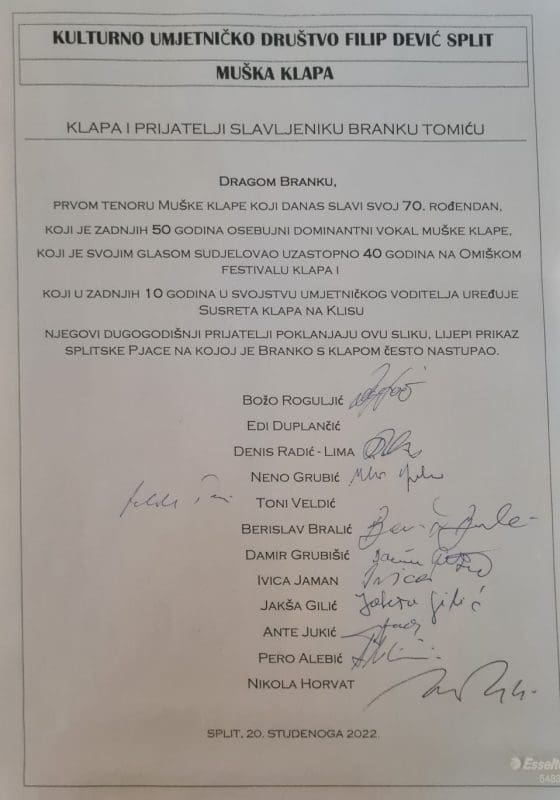 KULTURNO UMJETNIČKO DRUŠTVO FILIP DEVIĆ SPLIT
MUŠKA KLAPA
KLAPA I PRIJATELJI SLAVLJENIKU BRANKU TOMIĆU
DRAGOM BRANKU,
PRVOM TENORU MUŠKE KLAPE KOJI DANAS SLAVI SVOJ 70. ROĐENDAN,
KOJI JE ZADNJIH 50 GODINA OSEBUJNI DOMINANTNI VOKAL MUŠKE KLAPE,
KOJI JE SVOJIM GLASOM SUDJELOVAO UZASTOPNO 40 GODINA NA OMIŠKOM
FESTIVALU KLAPA I
KOJI U ZADNJIH 10 GODINA U SVOJSTVU UMJETNIČKOG VODITELJA UREĐUJE
SUSRETA KLAPA NA KLISU
NJEGOVI DUGOGODIŠNJI PRIJATELJI POKLANJAJU OVU SLIKU, LIJEPI PRIKAZ
SPLITSKE PJACE NA KOJOJ JE BRANKO S KLAPOM ČESTO NASTUPAO.
BOŽO ROGULJIĆ
EDI DUPLANČIĆ
DENIS RADIĆ - LIMA
NENO GRUBIĆ
TONI VELDIĆ
BERISLAV BRALIĆ
DAMIR GRUBIŠIĆ
IVICA JAMAN
JAKŠA GILIĆ Jakša Gilić
ANTE JUKIĆ
PERO ALEBIĆ
NIKOLA HORVAT
SPLIT, 20. STUDENOGA 2022.
Esselte